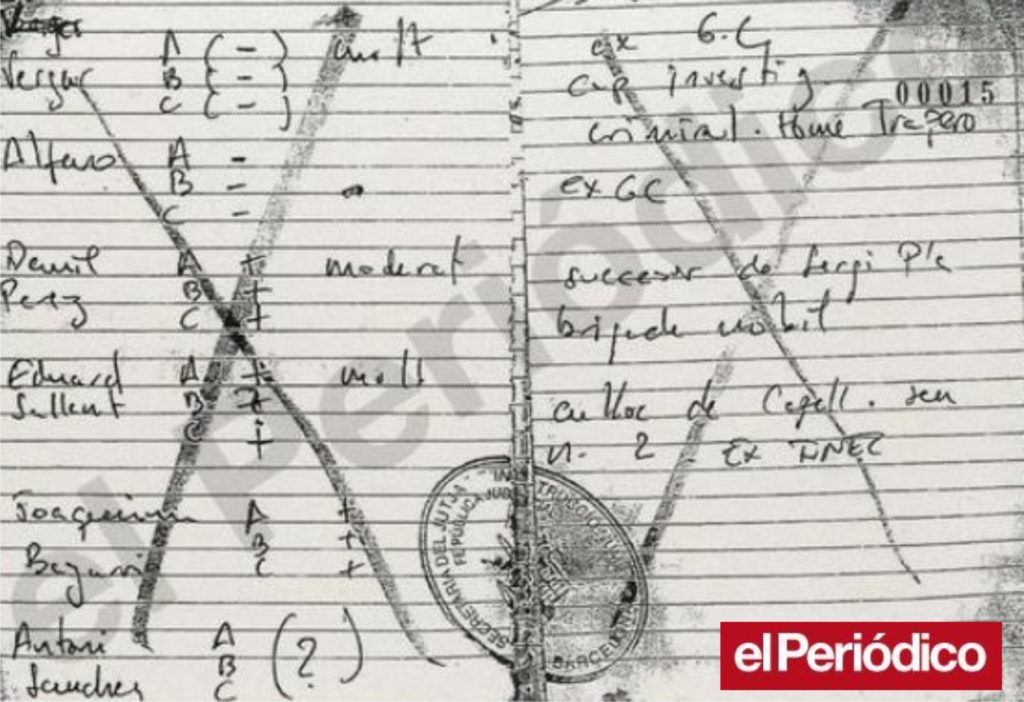 Vergar A ( - ) molt
B ( - )
C ( - )
Alfaro A -
B -
C -
Daniel A + moderat
Perez B +
C +
Eduard A + molt
Sallent B +
C +
Joaquim A +
B +
C +
Antoni A ( ? )
Sanchez B
C
ex G.C
cap investig
00015
criminal. Home Trapero
ex GC
successor de Sergi Pla
brigada mobil
en lloc de Capell. seu
n. 2 Ex INEC
SECRETARIA DEL JUTJA
BARCE
el Periódico
elPeriódico